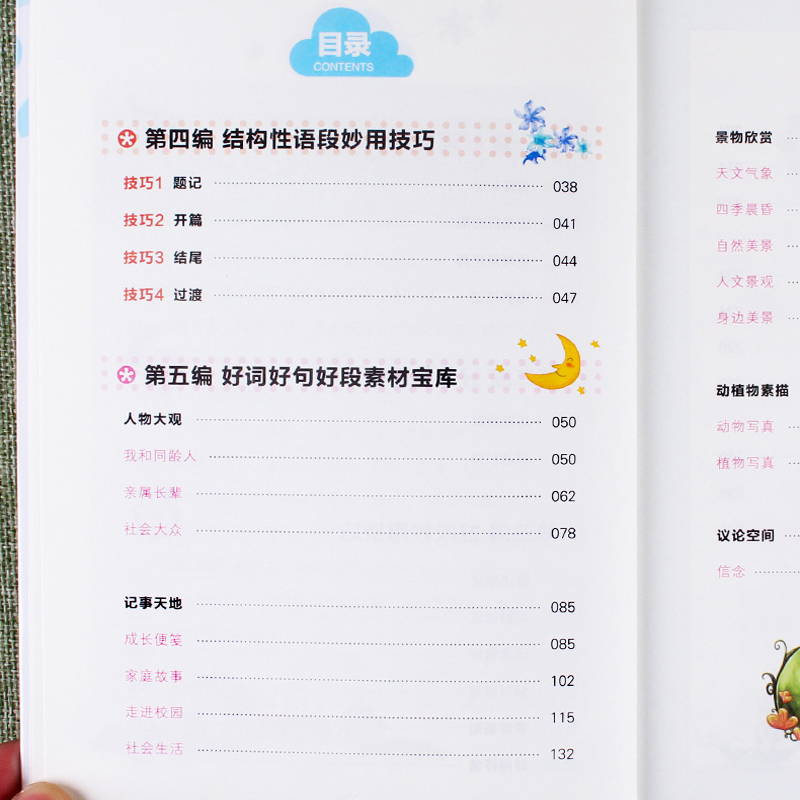 目录
CONTENTS
第四编 结构性语段妙用技巧
技巧1 题记 038
技巧2 开篇 041
技巧3 结尾 044
技巧4 过渡 047
第五编 好词好句好段素材宝库
人物大观 050
我和同龄人 050
亲属长辈 062
社会大众 078
记事天地 085
成长便笺 085
家庭故事 102
走进校园 115
社会生活 132
景物欣赏
天文气象
四季晨昏
自然美景
人文景观
身边美景
动植物素描
动物写真
植物写真
议论空间
信念